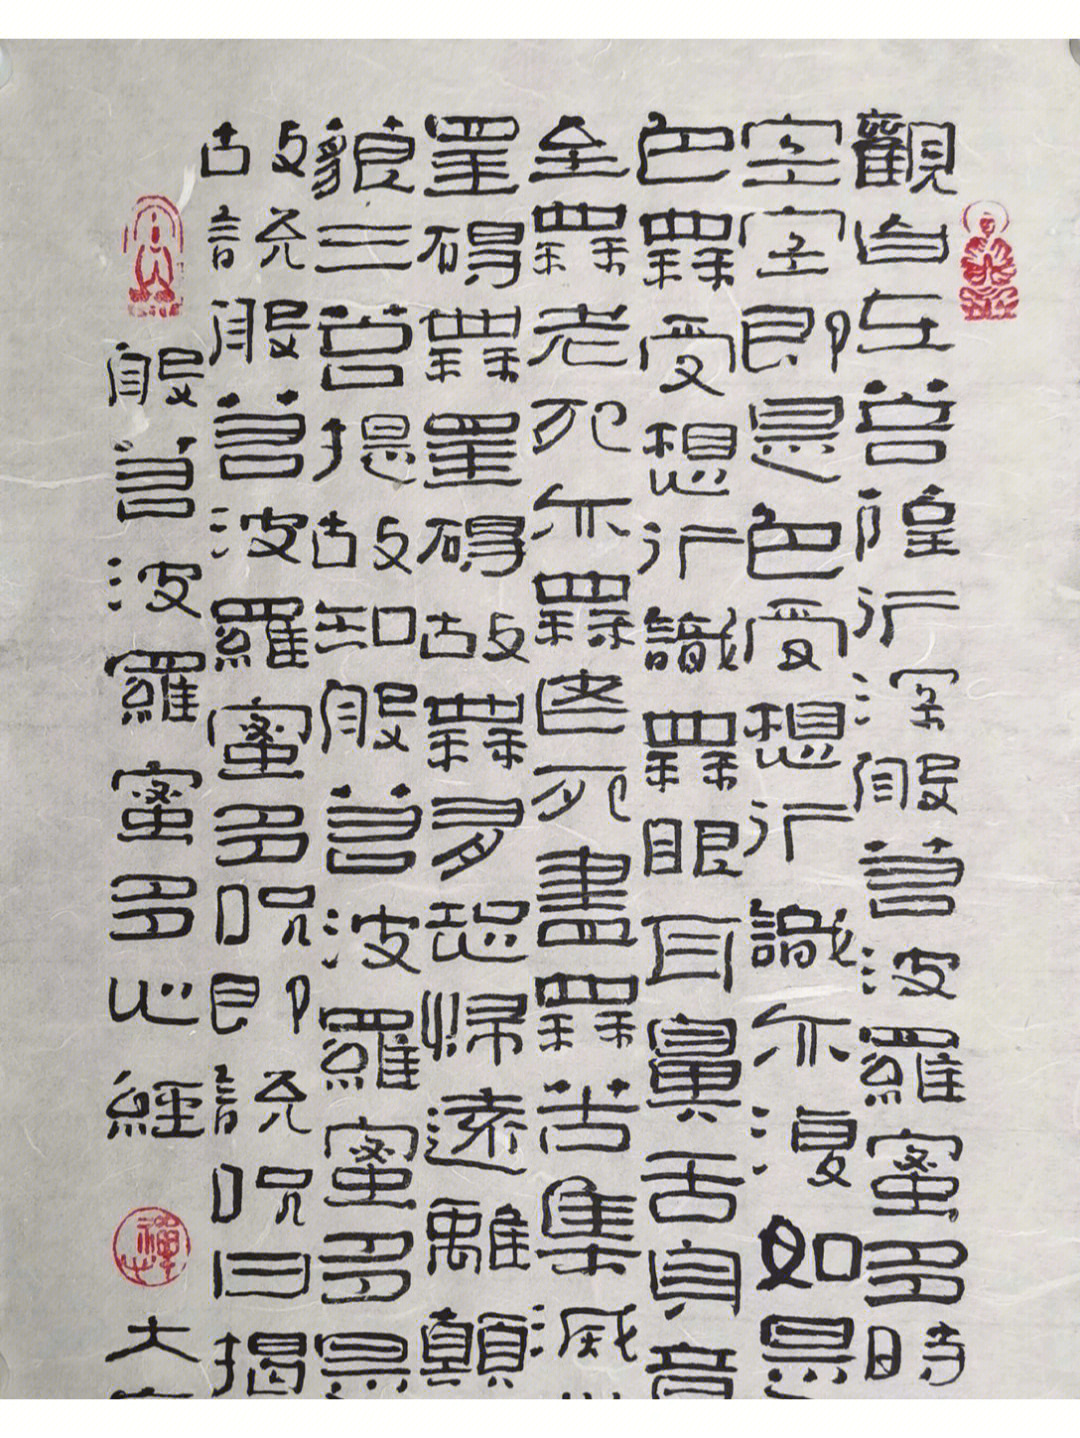 觀自在菩薩行深般若波羅蜜多時
空空即是色受想行識亦復如是
色無受想行識無眼耳鼻舌身意
至無老死亦無老死盡無苦集滅
罣礙無罣礙故無有恐怖遠離顛
藐三菩提故知般若波羅蜜多是
故說般若波羅蜜多呪即說呪曰揭
般若波羅蜜多心經
禪心
大